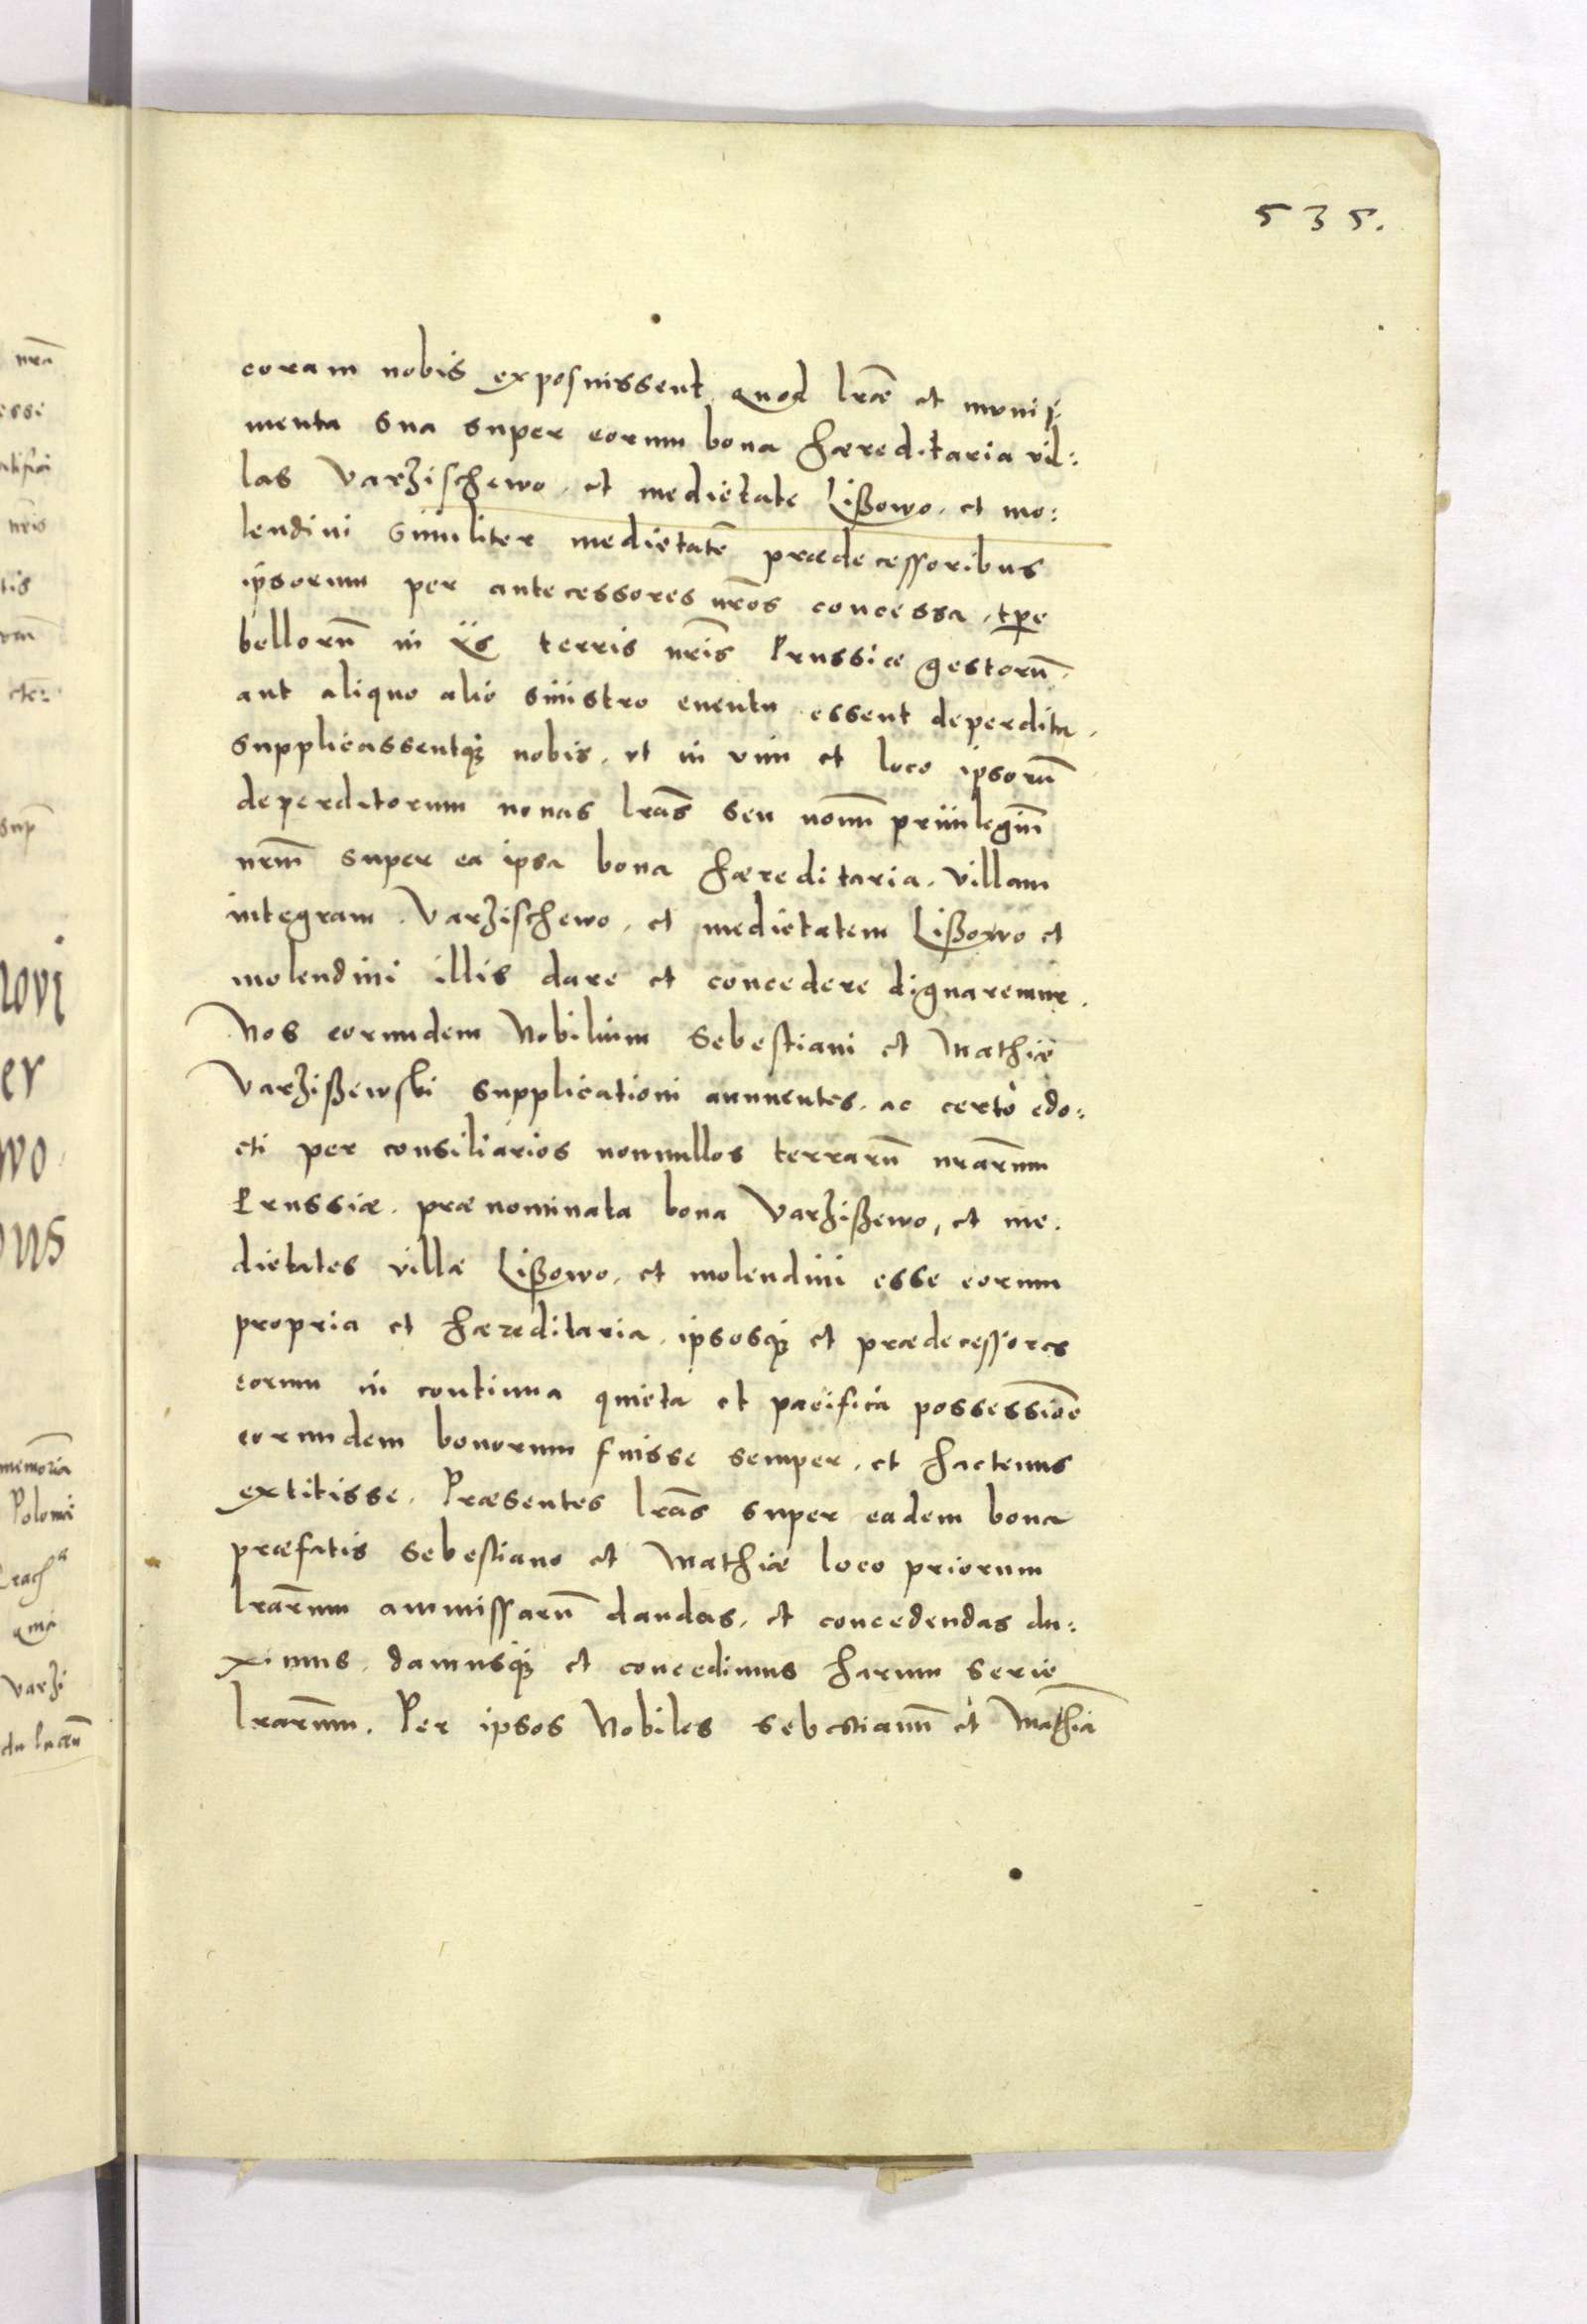 535.
coram nobis exposuissent quod lrãe et muni⸗
menta sua super eorum bona hæreditaria vil:
las Varzischewo, et medietate Lißowo, et mo:
lendini similiter medietatẽ prædecessoribus
ipsorum per antecessores nr̃os concessa, tp̱e
bellorũ in ijs terris nr̃is Prussiæ gestorũ,
aut aliquo alio sinistro euentu essent deperdita,
supplicassentq; nobis, vt in vim et loco ipsorũ
deperditorum nouas lrãs seu nouũ priuilegiũ
nr̃m super ea ipsa bona hæreditaria, villam
integram Varzischewo, et medietatem Lißowo et
molendini illis dare et concedere dignaremur.
Nos eorundem Nobilium Sebestiani et Mathiæ
Varzißewski supplicationi annuentes, ac certò edo:
cti per consiliarios nonnullos terrarũ nr̃arum
Prussiæ, prænominata bona Varzißewo, et me.
dietates villæ Lißowo, et molendini esse eorum
propria et hæreditaria, ipsosq; et prædecessores
eorum in continua quieta et pacifica possessiõe
eorundem bonorum fuisse semper, et hactenus
extitisse. Præsentes lrãs super eadem bona
præfatis Sebestiano et Mathiæ loco priorum
lrãrum ammissarũ dandas, et concedendas du:
ximus, damusq; et concedimus harum serie
lrãrum. Per ipsos Nobiles Sebestianũ et Mathiã
nrã
essi
nr̃is
tis
cte:
sup
novi
er
wo
ous
memoria
Varzi